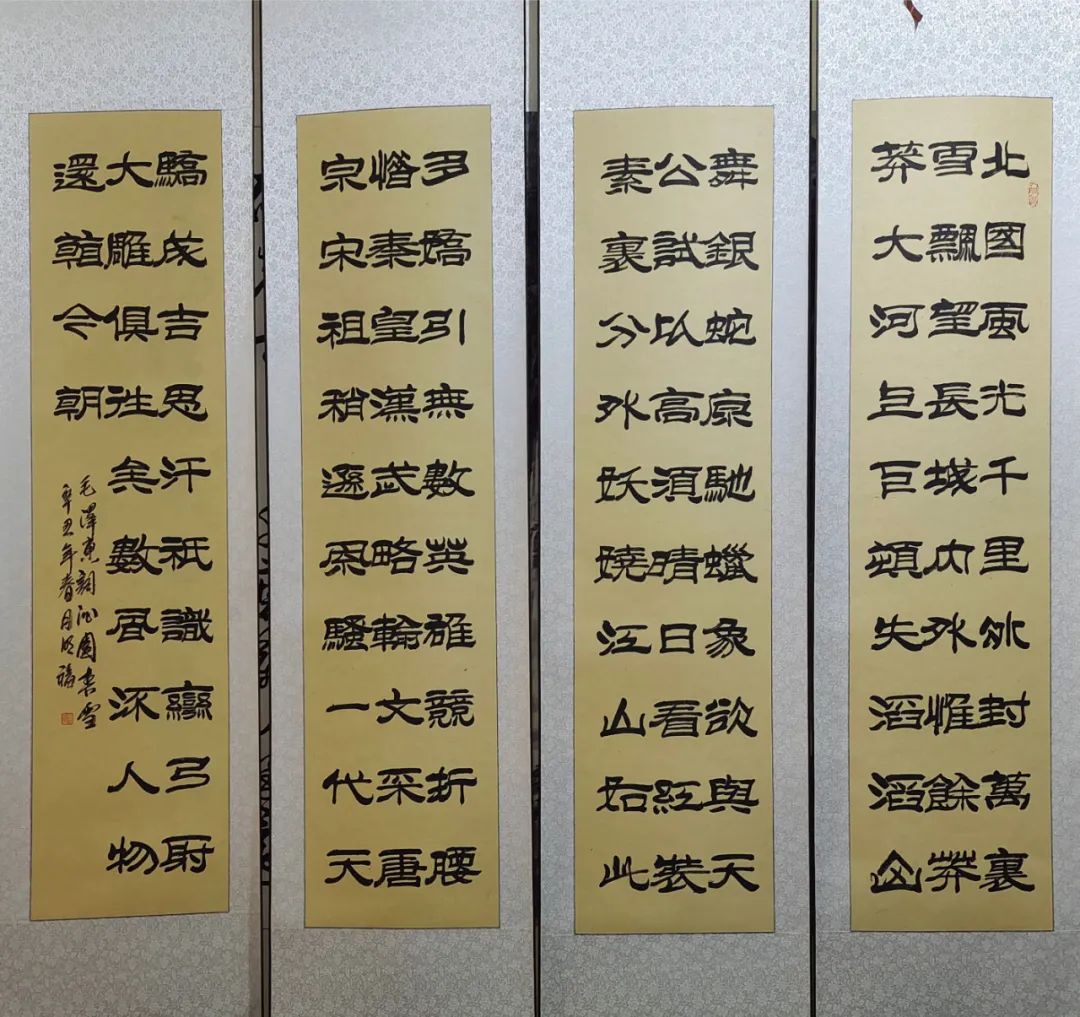 北國風光千里冰封萬裏
雪飄望長城內外惟餘莽
莽大河上下頓失滔滔山
舞銀蛇原馳蠟象欲與天
公試以高須晴日看紅裝
素裏分外妖嬈江山如此
多嬌引無數英雄競折腰
惜秦皇漢武略輸文采唐
宗宋祖稍遜風騷一代天
驕成吉思汗祇識彎弓射
大雕俱往矣數風流人物
還看今朝
毛澤東詞沁園春雪
辛丑年春月